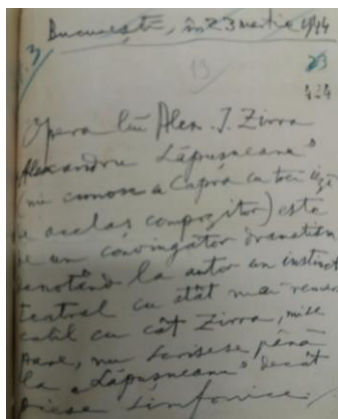 București, în 23 martie 1944
3
19
23
424
Opera lui Alex. I. Zirra
Alexandru Lăpușneanu"
(nu cunosc a Capra cu trei iezi
de același compozitor) este
de un convingător dramatism
denotând la autor un instinct
teatral cu atât mai remar
cabil cu cât Zirra, mi se
pare, nu scrisese până
la „Lăpușneanu" decât
piese simfonice.